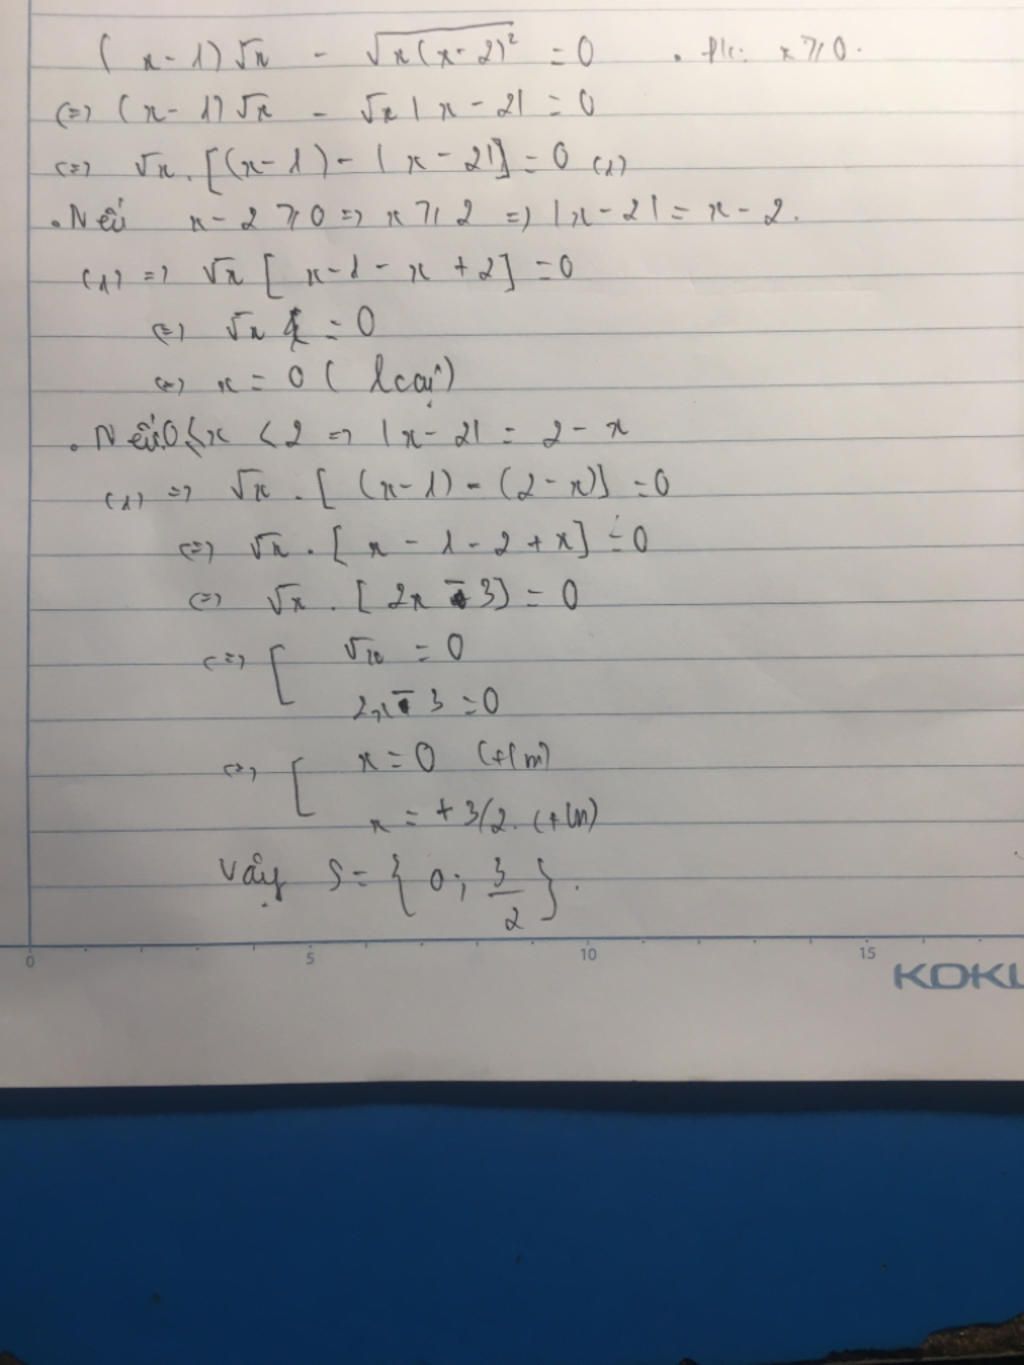 (x-1)√x - √x(x-2)² = 0 . đk: x ⩾ 0.
(=) (x-1)√x - √x |x-2| = 0
(=) √x. [(x-1) - |x-2|] = 0 (1)
. Nếu x-2 ⩾ 0 => x ⩾ 2 => |x-2| = x-2.
(1) => √x [x-1-x+2] = 0
(=) √x = 0
(=) x = 0 (loại)
. Nếu 0 ≤ x < 2 => |x-2| = 2-x
(1) => √x . [(x-1) - (2-x)] = 0
(=) √x . [x-1-2+x] = 0
(=) √x . [2x-3) = 0
(=) [ √x = 0
2x-3 = 0
(=) [ x = 0 (t/m)
x = +3/2. (t/m)
Vậy S = {0; 3/2}.
0 5 10 15
KOKU